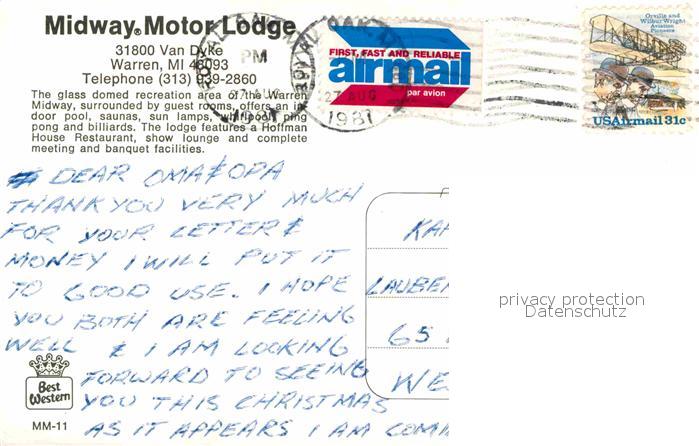 Midway® Motor Lodge
31800 Van Dyke
Warren, MI 48093
Telephone (313) 939-2860
The glass domed recreation area of the Warren
Midway, surrounded by guest rooms, offers an in-
door pool, saunas, sun lamps, whirlpool, ping
pong and billiards. The lodge features a Hoffman
House Restaurant, show lounge and complete
meeting and banquet facilities.
PM
27 AUG
1981
FIRST, FAST AND RELIABLE
airmail
par avion
Orville and
Wilbur Wright
Aviation
Pioneers
USAirmail 31c
DEAR OMA & OPA
THANK YOU VERY MUCH
FOR YOUR LETTER &
MONEY I WILL PUT IT
TO GOOD USE. I HOPE
YOU BOTH ARE FEELING
WELL & I AM LOOKING
FORWARD TO SEEING
YOU THIS CHRISTMAS
AS IT APPEARS I AM COMIN
KAR
LAUBEN
65
WE
privacy protection
Datenschutz
Best
Western
MM-11